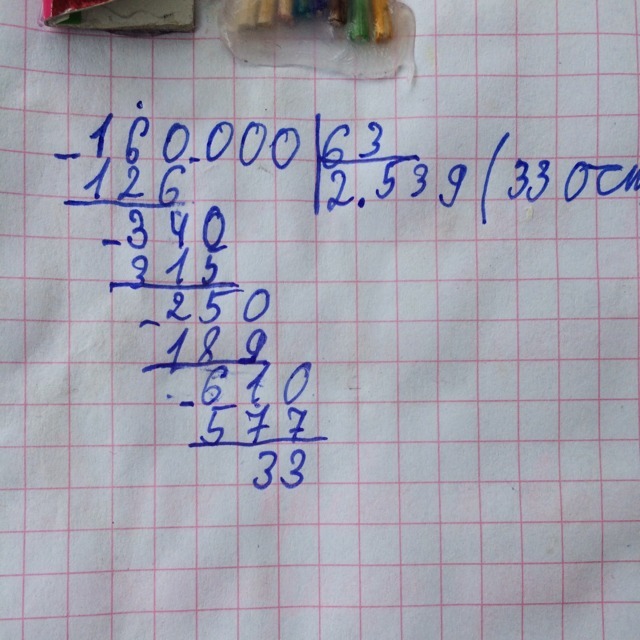 -160.000|63
126 2.539(33 ост
-340
315
-250
189
-610
577
33